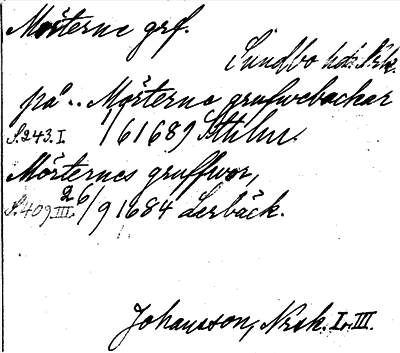 Mörterne grf.
Sundbo hd. Nrk.
på .. Mörterne grufwebackar
S.243.I. 16/6 1689 Sthlm.
Mörternes gruffwor,
S.409 III. 26/9 1684 Lerbäck.
Johansson, Nrsk. I o. III.